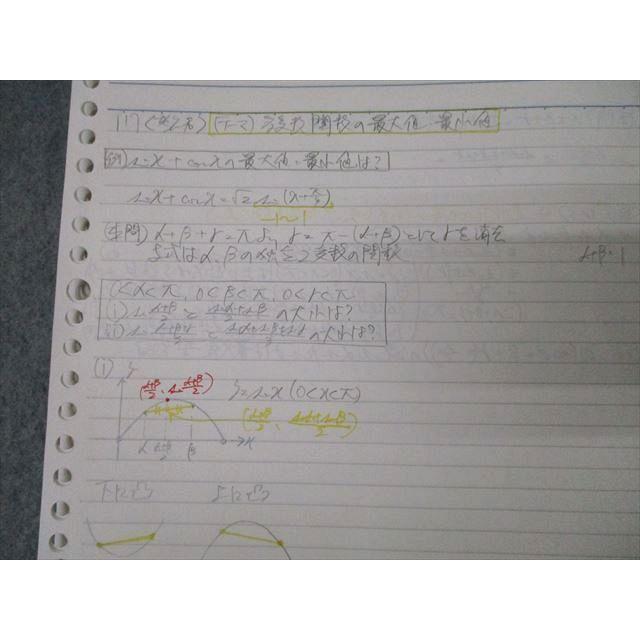 (テーマ) 多変数関数の最大値・最小値
(例) sin x + cos x の最大値・最小値は?
sin x + cos x = √2 sin (x+π/4)
-1~1
(本問) α+β+γ=π より γ=π-(α+β) として γを消去
与式は α, βの 2変数の関数
α+β
0<α<π, 0<β<π, 0<γ<π
(i) sin (α+β)/2 と (sinα+sinβ)/2 の大小は?
(ii) sin (α+β+γ)/3 と (sinα+sinβ+sinγ)/3 の大小は?
(i) y
((α+β)/2, sin (α+β)/2)
y=sin x (0<x<π)
((α+β)/2, (sinα+sinβ)/2)
α (α+β)/2 β x
下に凸 上に凸